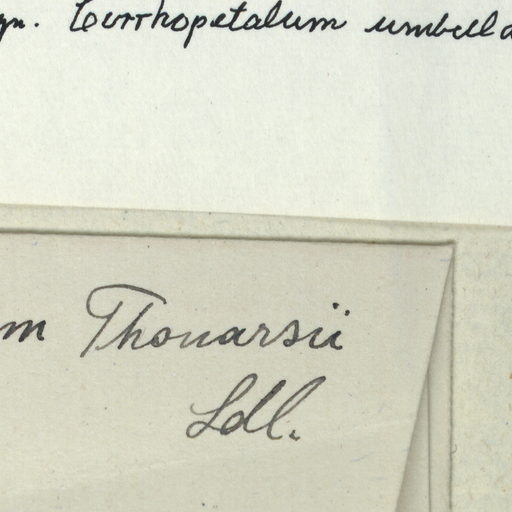 yn. Cirrhopetalum umbella
m Thouarsii
Ldl.